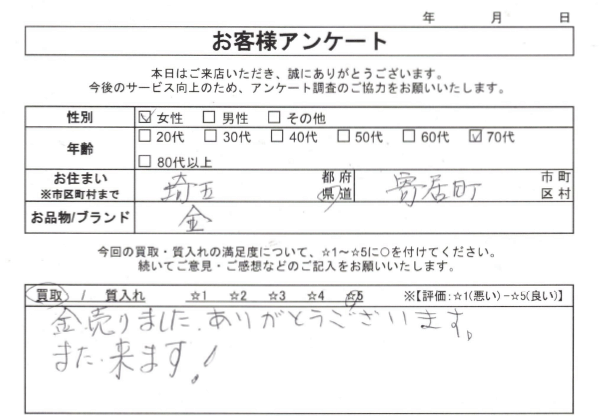 年 月 日
お客様アンケート
本日はご来店いただき、誠にありがとうございます。
今後のサービス向上のため、アンケート調査のご協力をお願いいたします。
性別 ☑ 女性 ☐ 男性 ☐ その他
年齢 ☐ 20代 ☐ 30代 ☐ 40代 ☐ 50代 ☐ 60代 ☑ 70代
☐ 80代以上
お住まい 埼玉 都府 寄居町 市町
※市区町村まで 県道 区村
お品物/ブランド 金
今回の買取・質入れの満足度について、☆1~☆5に○を付けてください。
続いてご意見・ご感想などのご記入をお願いいたします。
買取 / 質入れ ☆1 ☆2 ☆3 ☆4 ☆5 ※【評価:☆1(悪い)-☆5(良い)】
金売りました、ありがとうございます。
また来ます!